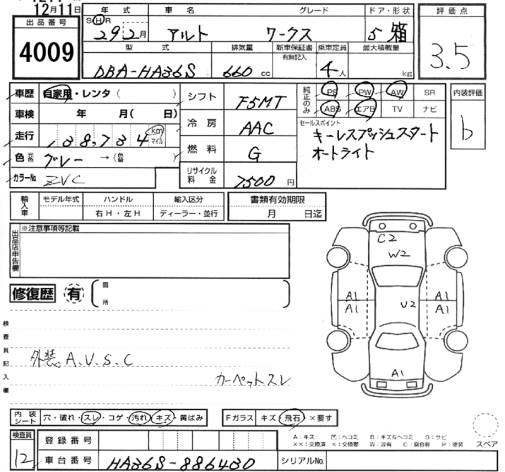 12月11日
出品番号
4009
年式 車名 グレード ドア・形状
S H R
29年2月 アルト ワークス 5 箱
型式 排気量 新車保証書 有無記入 乗車定員 最大積載量
DBA-HA36S 660cc 4人 kg
評価点
3.5
車歴 自家用・レンタ( )
車検 年 月( 日)
走行 38,734 km マイル
色 グレー →(色替 )
カラーNo ZVC
シフト F5MT
冷房 AAC
燃料 G
リサイクル料金 7500円
純正のみ PS PW AW SR
ABS エアB TV ナビ
セールスポイント
キーレスプッシュスタート
オートライト
内装評価
b
輸入車 モデル年式 ハンドル 輸入区分
右H・左H ディーラー・並行
書類有効期限
月 日迄
出品店申告欄
※注意事項等記載
修復歴 有 箇所
検査員記入欄
外装 A.U.S.C
カーペットスレ
C2
W2
A1 A1
A1 U2 A1
A1
内装シート 穴・破れ・スレ・コゲ・汚れ・キズ・黄ばみ
Fガラス キズ・飛石・×要す
スペア
検査員
12
登録番号
車台番号 HA36S-886430
シリアルNo.